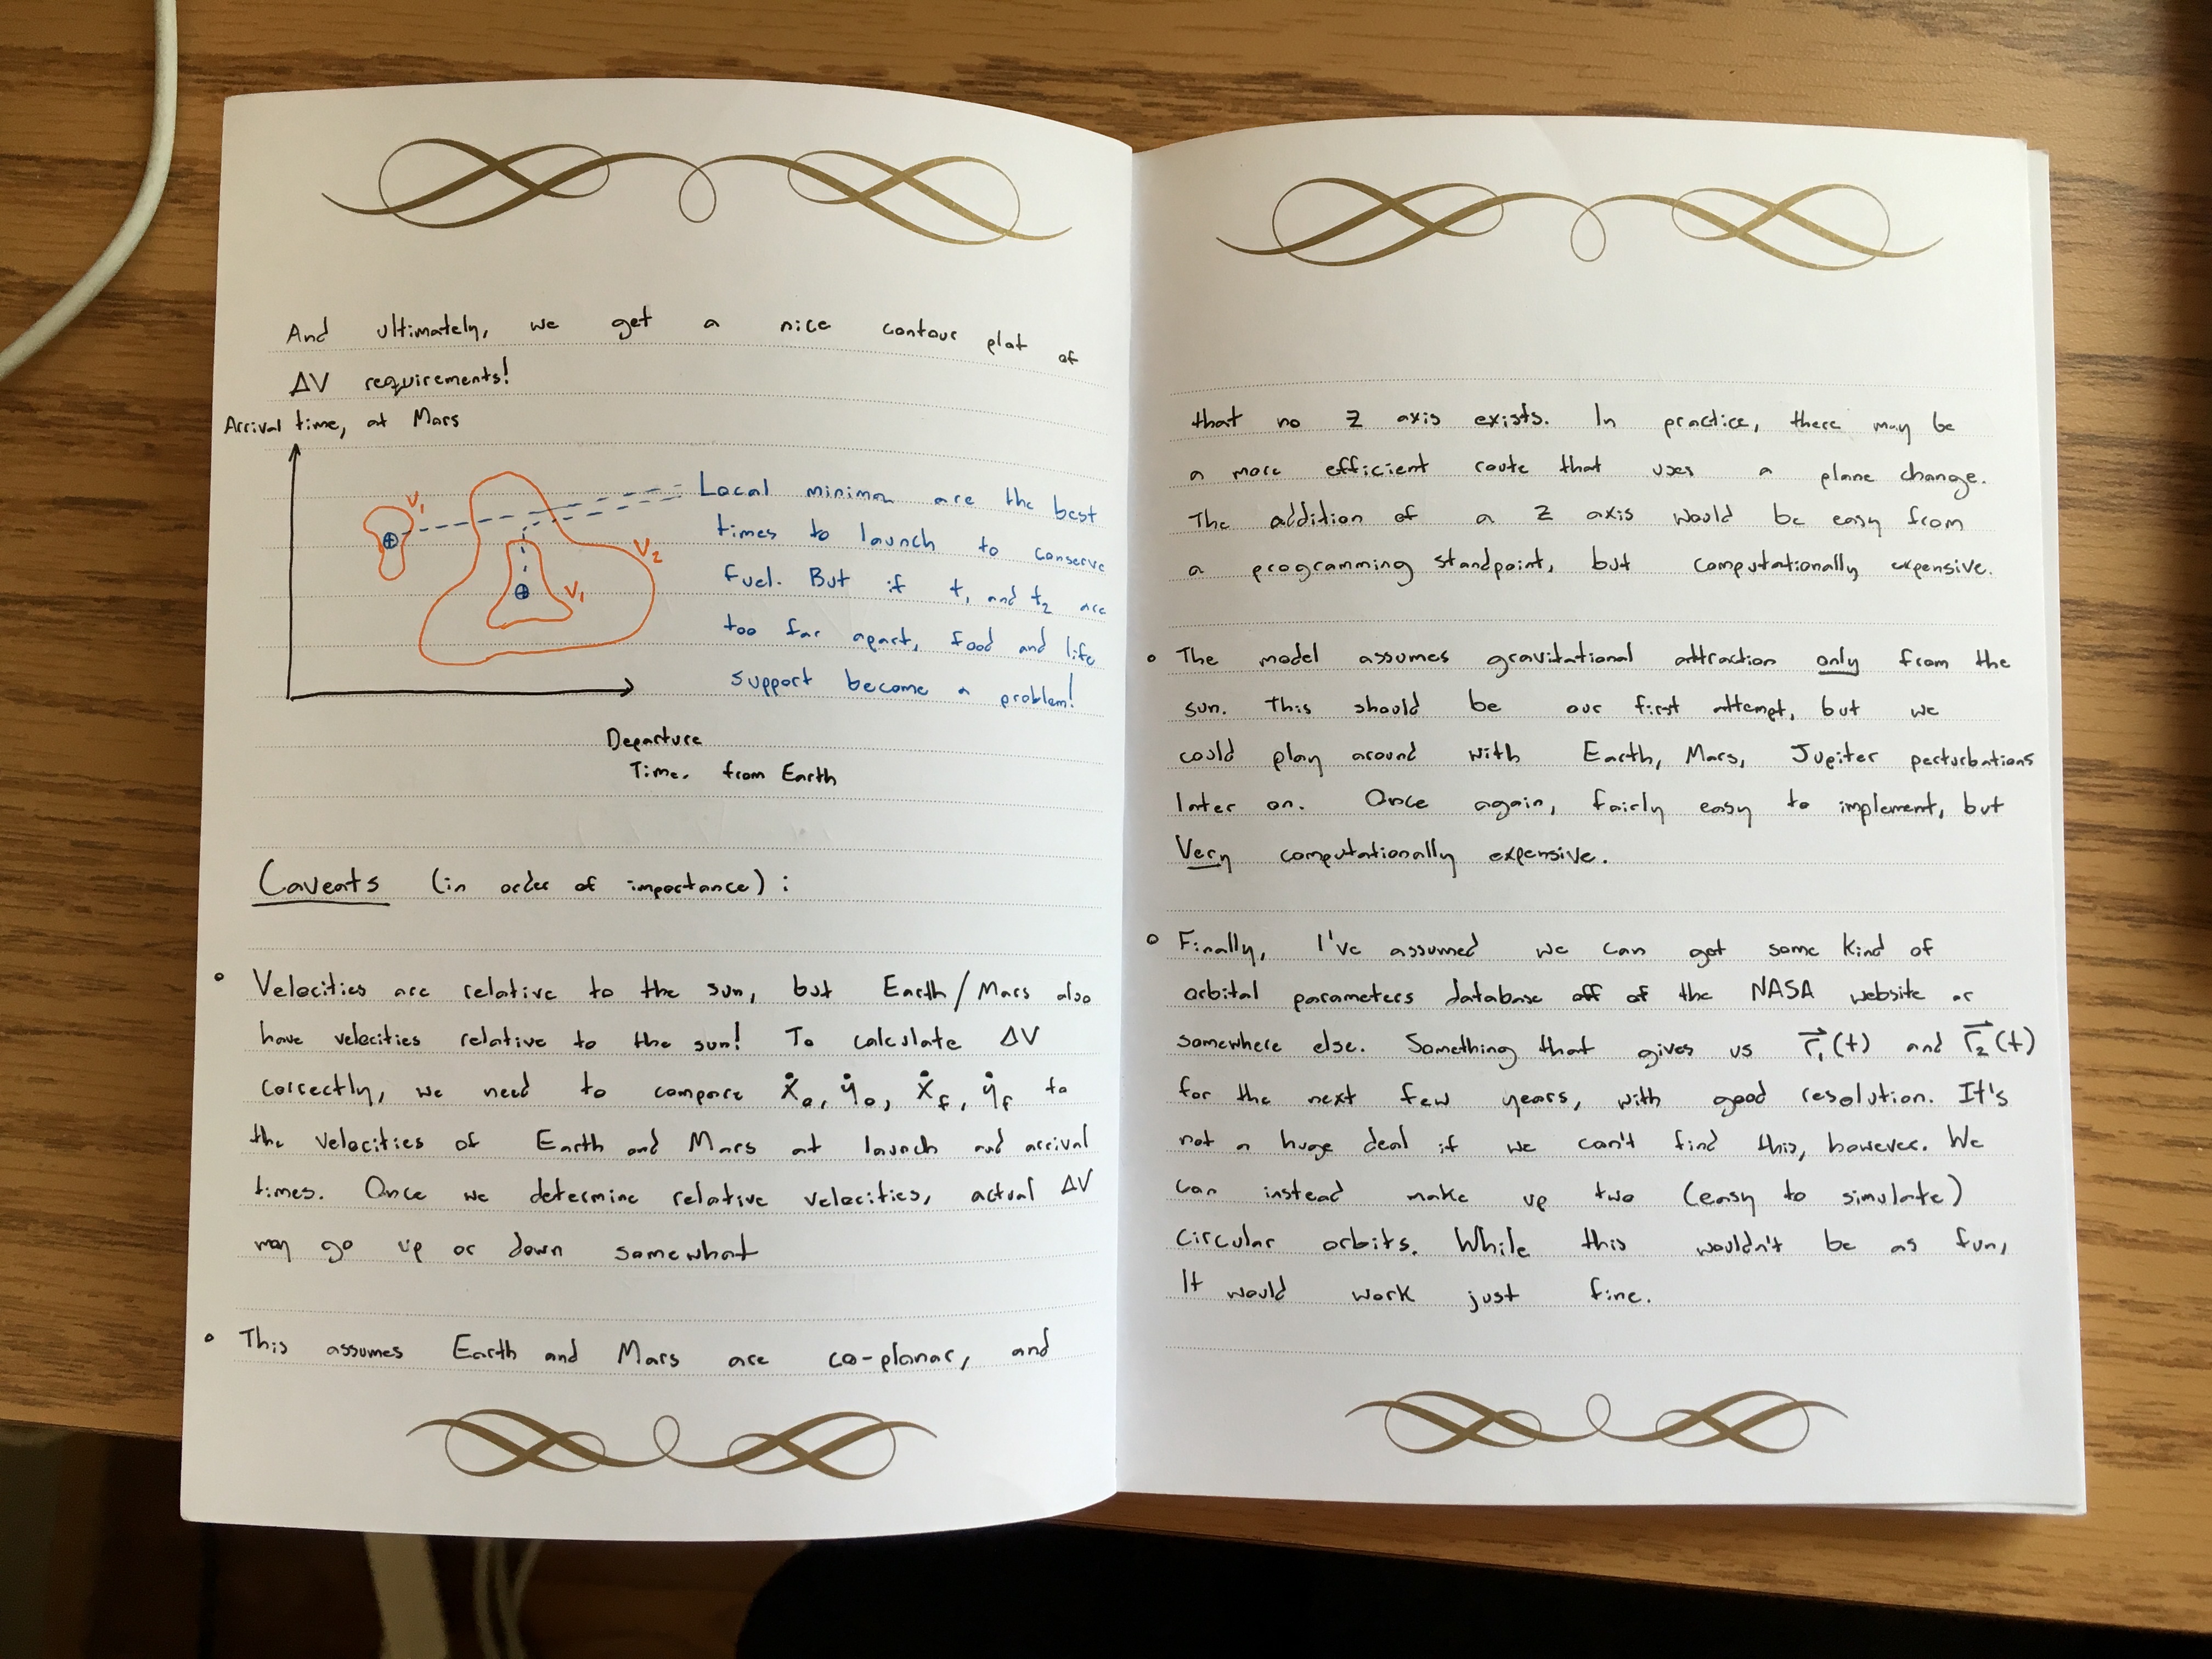 And ultimately, we get a nice contour plot of
ΔV requirements!
Arrival time, at Mars
V₁
V₂
V₁
Local minima are the best
times to launch to conserve
fuel. But if t₁ and t₂ are
too far apart, food and life
support become a problem!
Departure
Time. from Earth
Caveats (in order of importance):
• Velocities are relative to the sun, but Earth/Mars also
have velocities relative to the sun! To calculate ΔV
correctly, we need to compare ẋ₀, ẏ₀, ẋf, ẏf to
the velocities of Earth and Mars at launch and arrival
times. Once we determine relative velocities, actual ΔV
may go up or down somewhat
• This assumes Earth and Mars are co-planar, and
that no Z axis exists. In practice, there may be
a more efficient route that uses a plane change.
The addition of a Z axis would be easy from
a programming standpoint, but computationally expensive.
• The model assumes gravitational attraction only from the
sun. This should be our first attempt, but we
could play around with Earth, Mars, Jupiter perturbations
later on. Once again, fairly easy to implement, but
Very computationally expensive.
• Finally, I've assumed we can get some kind of
orbital parameters database off of the NASA website or
somewhere else. Something that gives us r⃗₁(t) and r⃗₂(t)
for the next few years, with good resolution. It's
not a huge deal if we can't find this, however. We
can instead make up two (easy to simulate)
circular orbits. While this wouldn't be as fun,
It would work just fine.